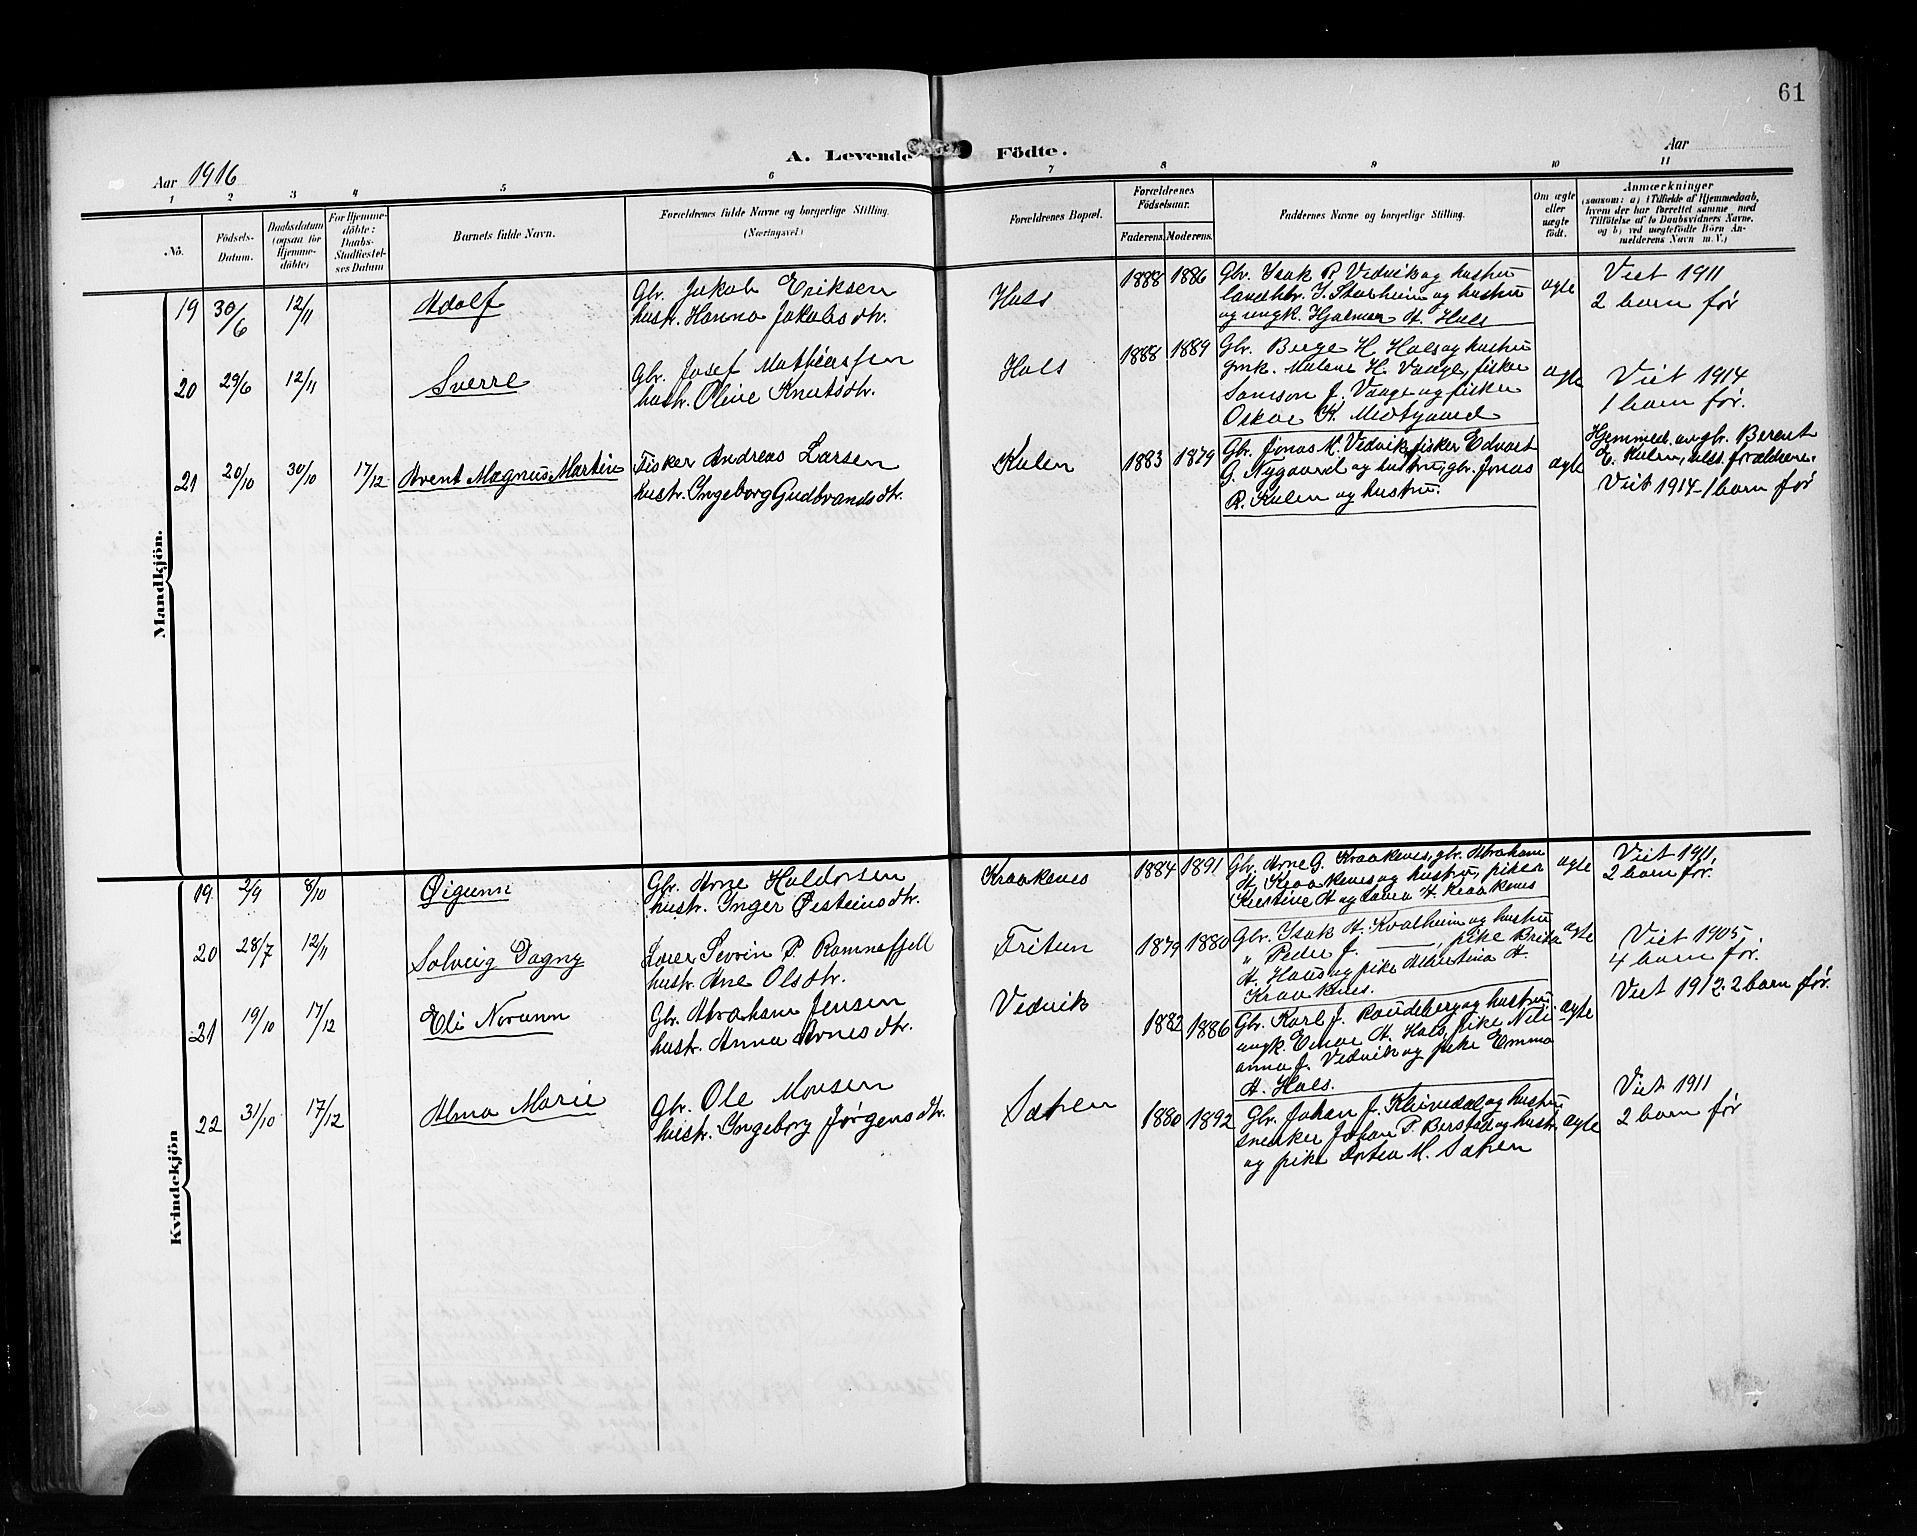 61
A. Levende Födte.
Aar 1916
Aar
1 2 3 4 5 6 7 8 9 10 11
No.
Födsels-Datum.
Daabsdatum (ogsaa for Hjemme-döbte)
For Hjemme-döbte: Daabs-Stadfæstel-ses Datum
Barnets fulde Navn.
Forældrenes fulde Navne og borgerlige Stilling. (Næringsvei.)
Forældrenes Bopæl.
Forældrenes Födselsaar.
Faderens. Moderens.
Faddernes Navne og borgerlige Stilling.
Om ægte eller uægte födt.
Anmærkninger
(saasom: a) i Tilfælde af Hjemmedaab,
hvem der har forrettet samme med
Tilföielse af to Daabsvidners Navne.
og b) ved uægtefödte Börn An-
melderens Navn m. V.)
Mandkjön.
19 30/6 12/11 Adolf
Gbr. Jakob Eriksen
hustr. Hanna Jakobsdtr.
Hals 1888 1886
Gbr. Isak R. Vedvik og hustru
landhbr. J. Starheim og hustru
og ungk. Hjalmar A. Hals
ægte
Viet 1911
2 barn før
20 29/6 12/11 Sverre
Gbr. Josef Mathiassen
hustr. Oline Knutsdtr.
Hals 1888 1889
Gbr. Berge H. Hals og hustru
gmk. Malene H. Vaage, fisker
Samson J. Vaage og fisker
Oskar K. Medtgaard
ægte
Viet 1914
1 barn før.
21 20/10 30/10 17/12 Arent Magnus Martin
Fisker Andreas Larsen
hustr. Ingeborg Gudbrandsdtr.
Kulen 1883 1879
Gbr. Jonas K. Vedvik, fisker Edvart
G. Nygaard og hustru, gbr. Jonas
R. Kulen og hustru.
ægte
Hjemmed. av gbr. Berent
E. Kulen, vidss. forældrene.
Viet 1914 - 1 barn før
Kvindekjön
19. 2/9 8/10 Øigunn
Gbr. Arne Haldorsen
hustr. Inger Øisteinsdtr.
Kraakenes 1884 1891
Gbr. Arne G. Kraakenes, gbr. Abraham
A. Kraakenes og hustru, piker
Kirstine A og Lovra A. Kraakenes
ægte
Viet 1911,
2 barn før.
20 28/7 12/11 Solveig Dagny
Lærer Sevrin P. Ramnefjell
hustr. Ane Olsdtr.
Fritun 1879 1880
Gbr. Isak A. Kvalheim og hustru
" Peder J. —, pike Brita
A. Hals og pike Albertina A.
Kraakenes.
ægte
Viet 1905
4 barn før.
21 19/10 17/12 Eli Norunn
Gbr. Abraham Jensen
hustr. Anna Arnesdtr.
Vedvik 1882 1886
Gbr. Karl J. Raudeberg og hustru,
ungk. Einar A. Hals, pike Nili-
anna J. Vedvik og pike Emma
A. Hals.
ægte
Viet 1912. 2 barn før.
22 31/10 17/12 Alma Marie
Gbr. Ole Monsen
hustr. Ingeborg Jørgensdtr.
Sætren 1880 1892
Gbr. Johan J. Klinedal og hustru,
snekker Johan T. Berstad og hustr.
og pike Dortea M. Sætren
ægte
Viet 1911
2 barn før